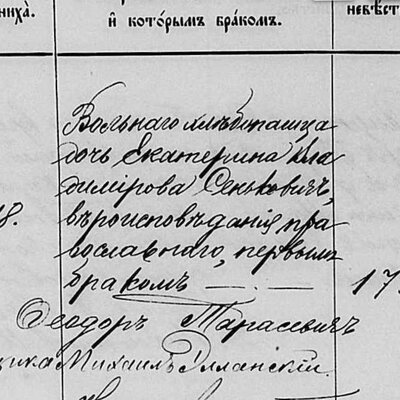 ниха̀.
и҆ кото́рымъ бра́комъ.
невѣ́ст
Вольнаго хлѣбопашца
дочь Екатерина Вла
димірова Сенъковичъ,
8.
вѣроисповѣданія пра
вославнаго, первымъ
бракомъ — · —
17
Ѳеодоръ Тарасевичъ
щика Михаилъ